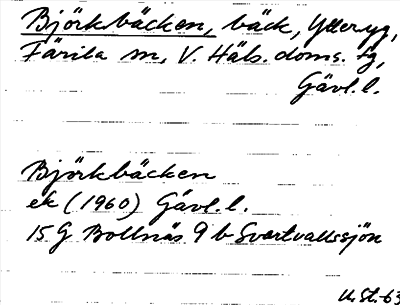 Björkbäcken, bäck, Ytteryg,
Färila sn, V. Häls. doms. fg,
Gävl. l.
Björkbäcken
ek (1960) Gävl. l.
15G Bollnäs 9b Svartvallssjön
U. St. -63